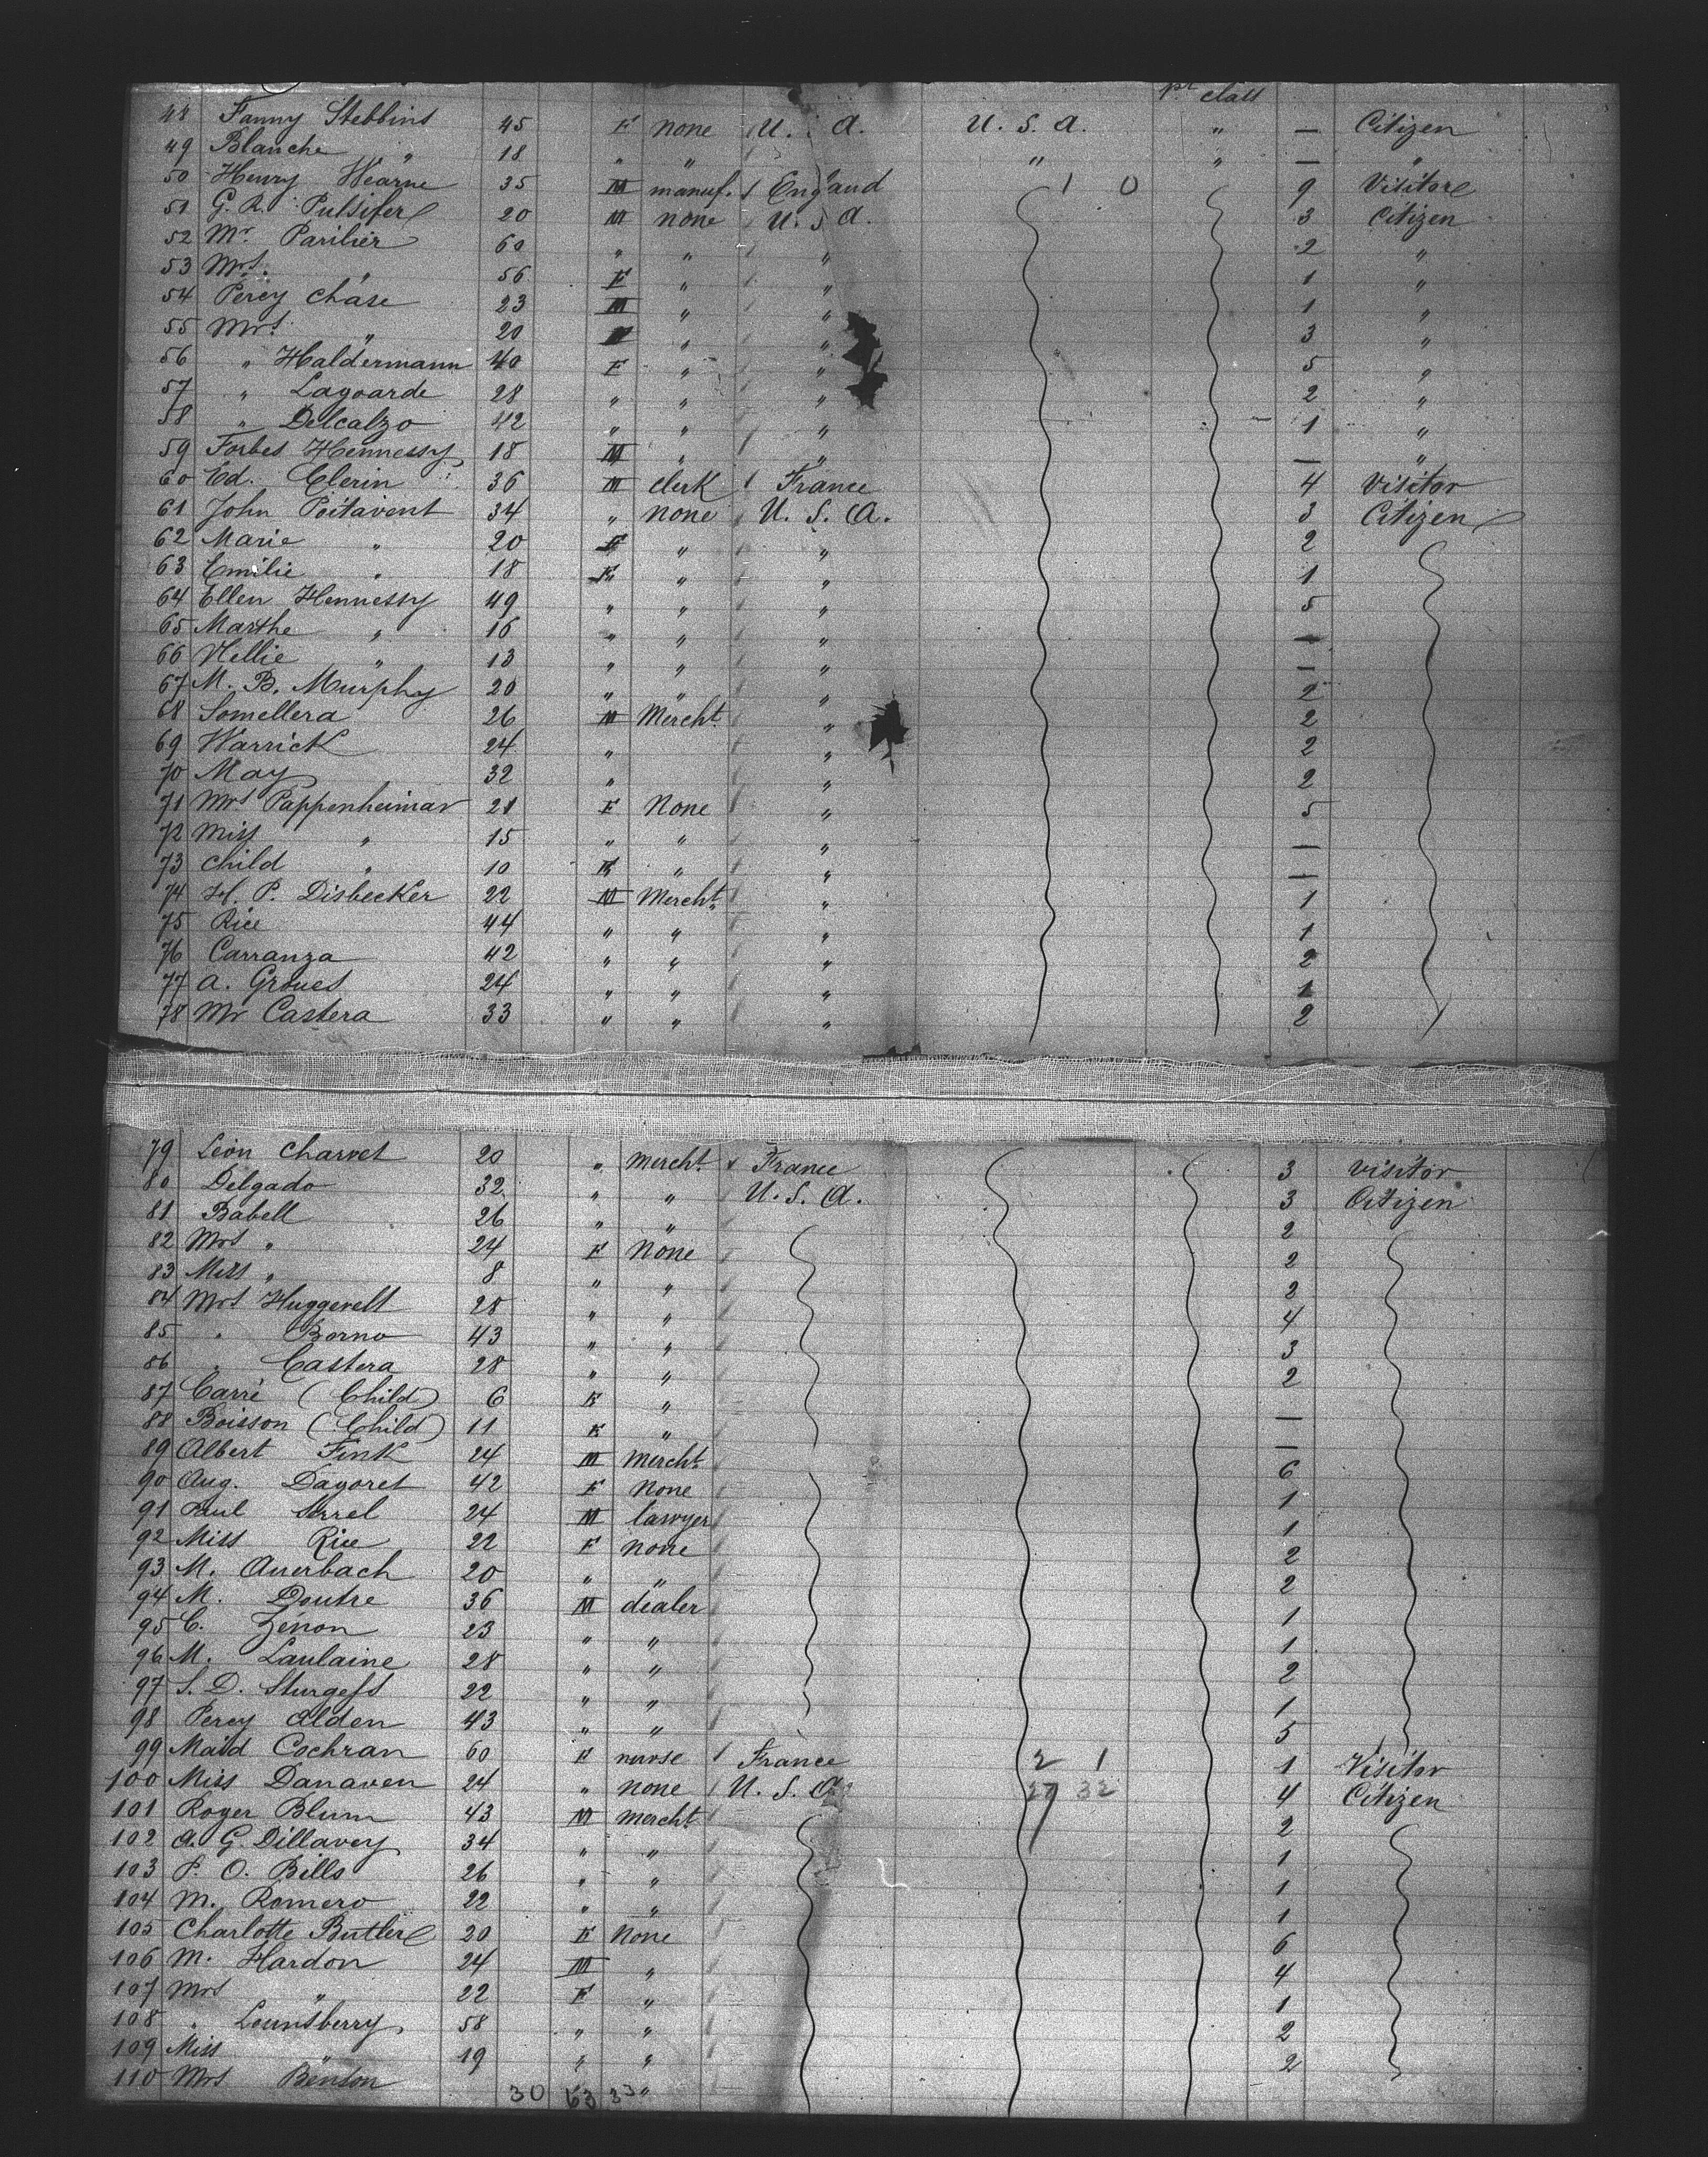 pr class
48 Fanny Stebbins 45 F none U. A. U. S. A. " — Citizen
49 Blanche " 18 " " " " — "
50 Henry Wearne 35 M manuf. England 1 0 9 Visitor
51 G. R. Pulsifer 20 M none U. S A. 3 Citizen
52 Mr. Parilier 60 " " " 2 "
53 Mrs. " 56 F " " 1 "
54 Percy Chase 23 M " " 1 "
55 Mrs. " 20 " " 3 "
56 " Haldermann 40 F " " 5 "
57 " Lagoarde 28 " " " 2 "
58 " Delcalzo 42 " " " 1 "
59 Forbes Hennessy 18 M " " — "
60 Ed. Clerin 36 M clerk France 4 Visitor
61 John Poitavent 34 " none U. S. A. 3 Citizen
62 Marie " 20 F " " 2
63 Emilie " 18 F " " 1
64 Ellen Hennessy 49 " " " 5
65 Marthe " 16 " " " —
66 Nellie " 13 " " " —
67 M. B. Murphy 20 " " " 2
68 Somellera 26 M Mercht. " 2
69 Warrick 24 " " 2
70 May 32 " " 2
71 Mrs Pappenheimar 21 F None " 5
72 Miss " 15 " " " —
73 child " 10 " " —
74 H. P. Disbecker 22 M Mercht. " 1
75 Rice 44 " " " 1
76 Carranza 42 " " " 2
77 A. Groues 24 " " " 1
78 Mr Castera 33 " " " 2
79 Léon Charvet 20 " mercht France 3 visitor
80 Delgado 32 " " U. S. A. 3 Citizen
81 Babell 26 " " 2
82 Mrs " 24 F None 2
83 Miss " 8 " " 2
84 Mrs Huggevelt 28 " " 4
85 " Borno 43 " " 3
86 " Castera 28 " " 2
87 Carré (Child) 6 "
88 Boisson (Child) 11 " —
89 Albert Fink 24 M mercht. —
90 Aug. Dagoret 42 F None 6
91 Paul 24 M lawyer 1
92 Miss Rice 22 F none 1
93 M. Auerbach 20 " " 2
94 M. Doutre 36 M dealer 2
95 C. Zénon 23 " " 1
96 M. Laulaine 28 " " 1
97 S. D. Sturgess 22 " " 2
98 Percy Alden 43 " " 1
99 Maid Cochran 60 F nurse France 2 1 5
100 Miss Danaven 24 " none U. S. A. 27 32 1 Visitor
101 Roger Blum 43 M mercht. 4 Citizen
102 A. G. Dillavey 34 " " 2
103 P. O. Bills 26 " " 1
104 M. Romero 22 " " 1
105 Charlotte Butler 20 F None 1
106 M. Hardon 24 M " 6
107 Mrs " 22 F " 4
108 " Lounsberry 58 " " 1
109 Miss " 19 " " 2
110 Mrs Benson " 2
30 63 33